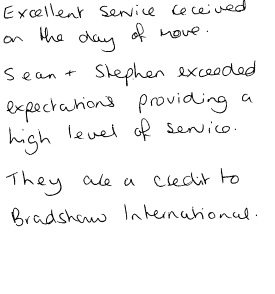 Excellent service received
on the day of move.
Sean + Stephen exceeded
expectations providing a
high level of service.
They are a credit to
Bradshaw International.